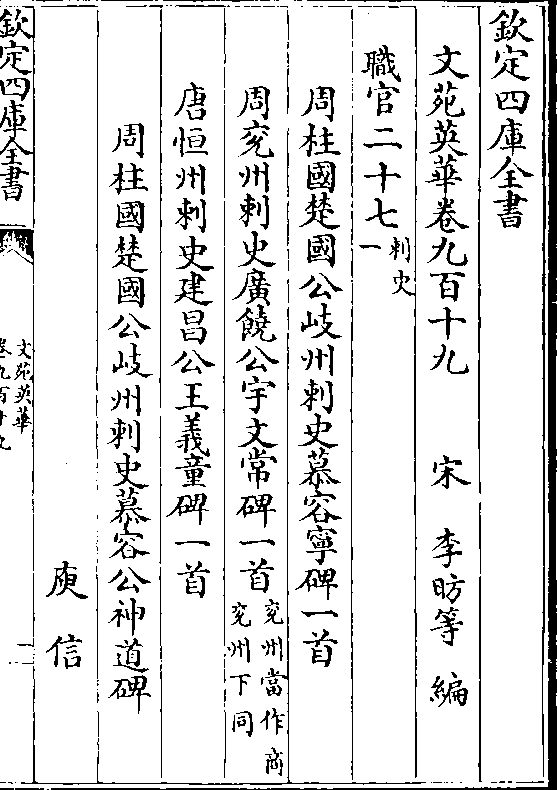 欽定四庫全書
文苑英華卷九百十九 宋 李昉等 編
職官二十七
刺史
一
周柱國楚國公岐州刺史慕容寧碑一首
周兖州刺史廣饒公宇文常碑一首
兖州當作商
兖州下同
唐恒州刺史建昌公王義童碑一首
周柱國楚國公岐州刺史慕容公神道碑
庾信
欽定四庫全書
文苑英華
卷九百十九
一